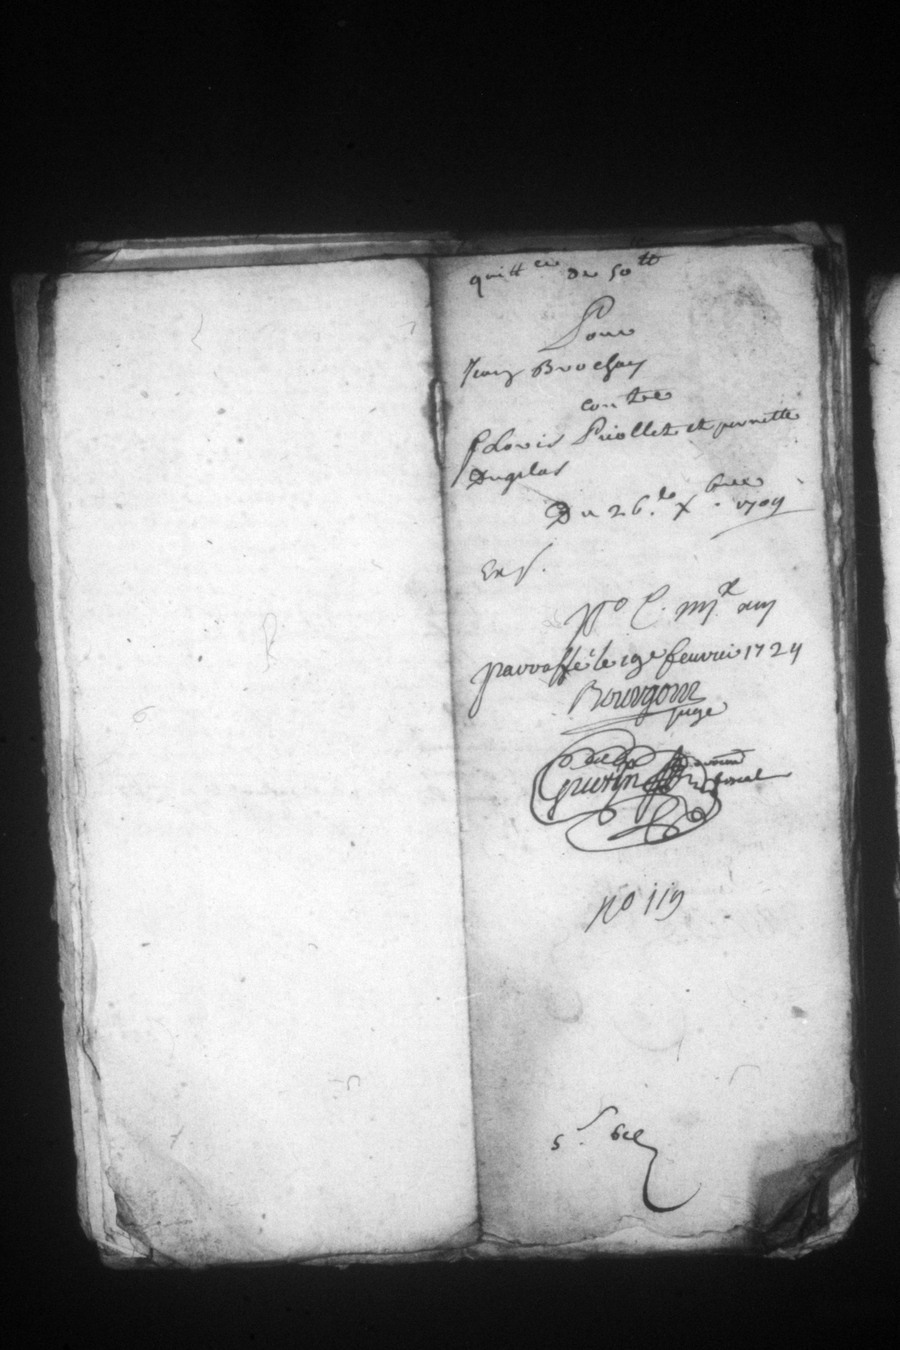 quitt ce de 50 tt
Pour
Jean Brochay
contre
Louis Priollet et pernette
Dugelas
Du 26.e X bre 1709
Exp.
No C. my.
parraffé le 19e feuvrier 1724
Bourgoin
juge
Guerin
fiscal
No 119
5 s.